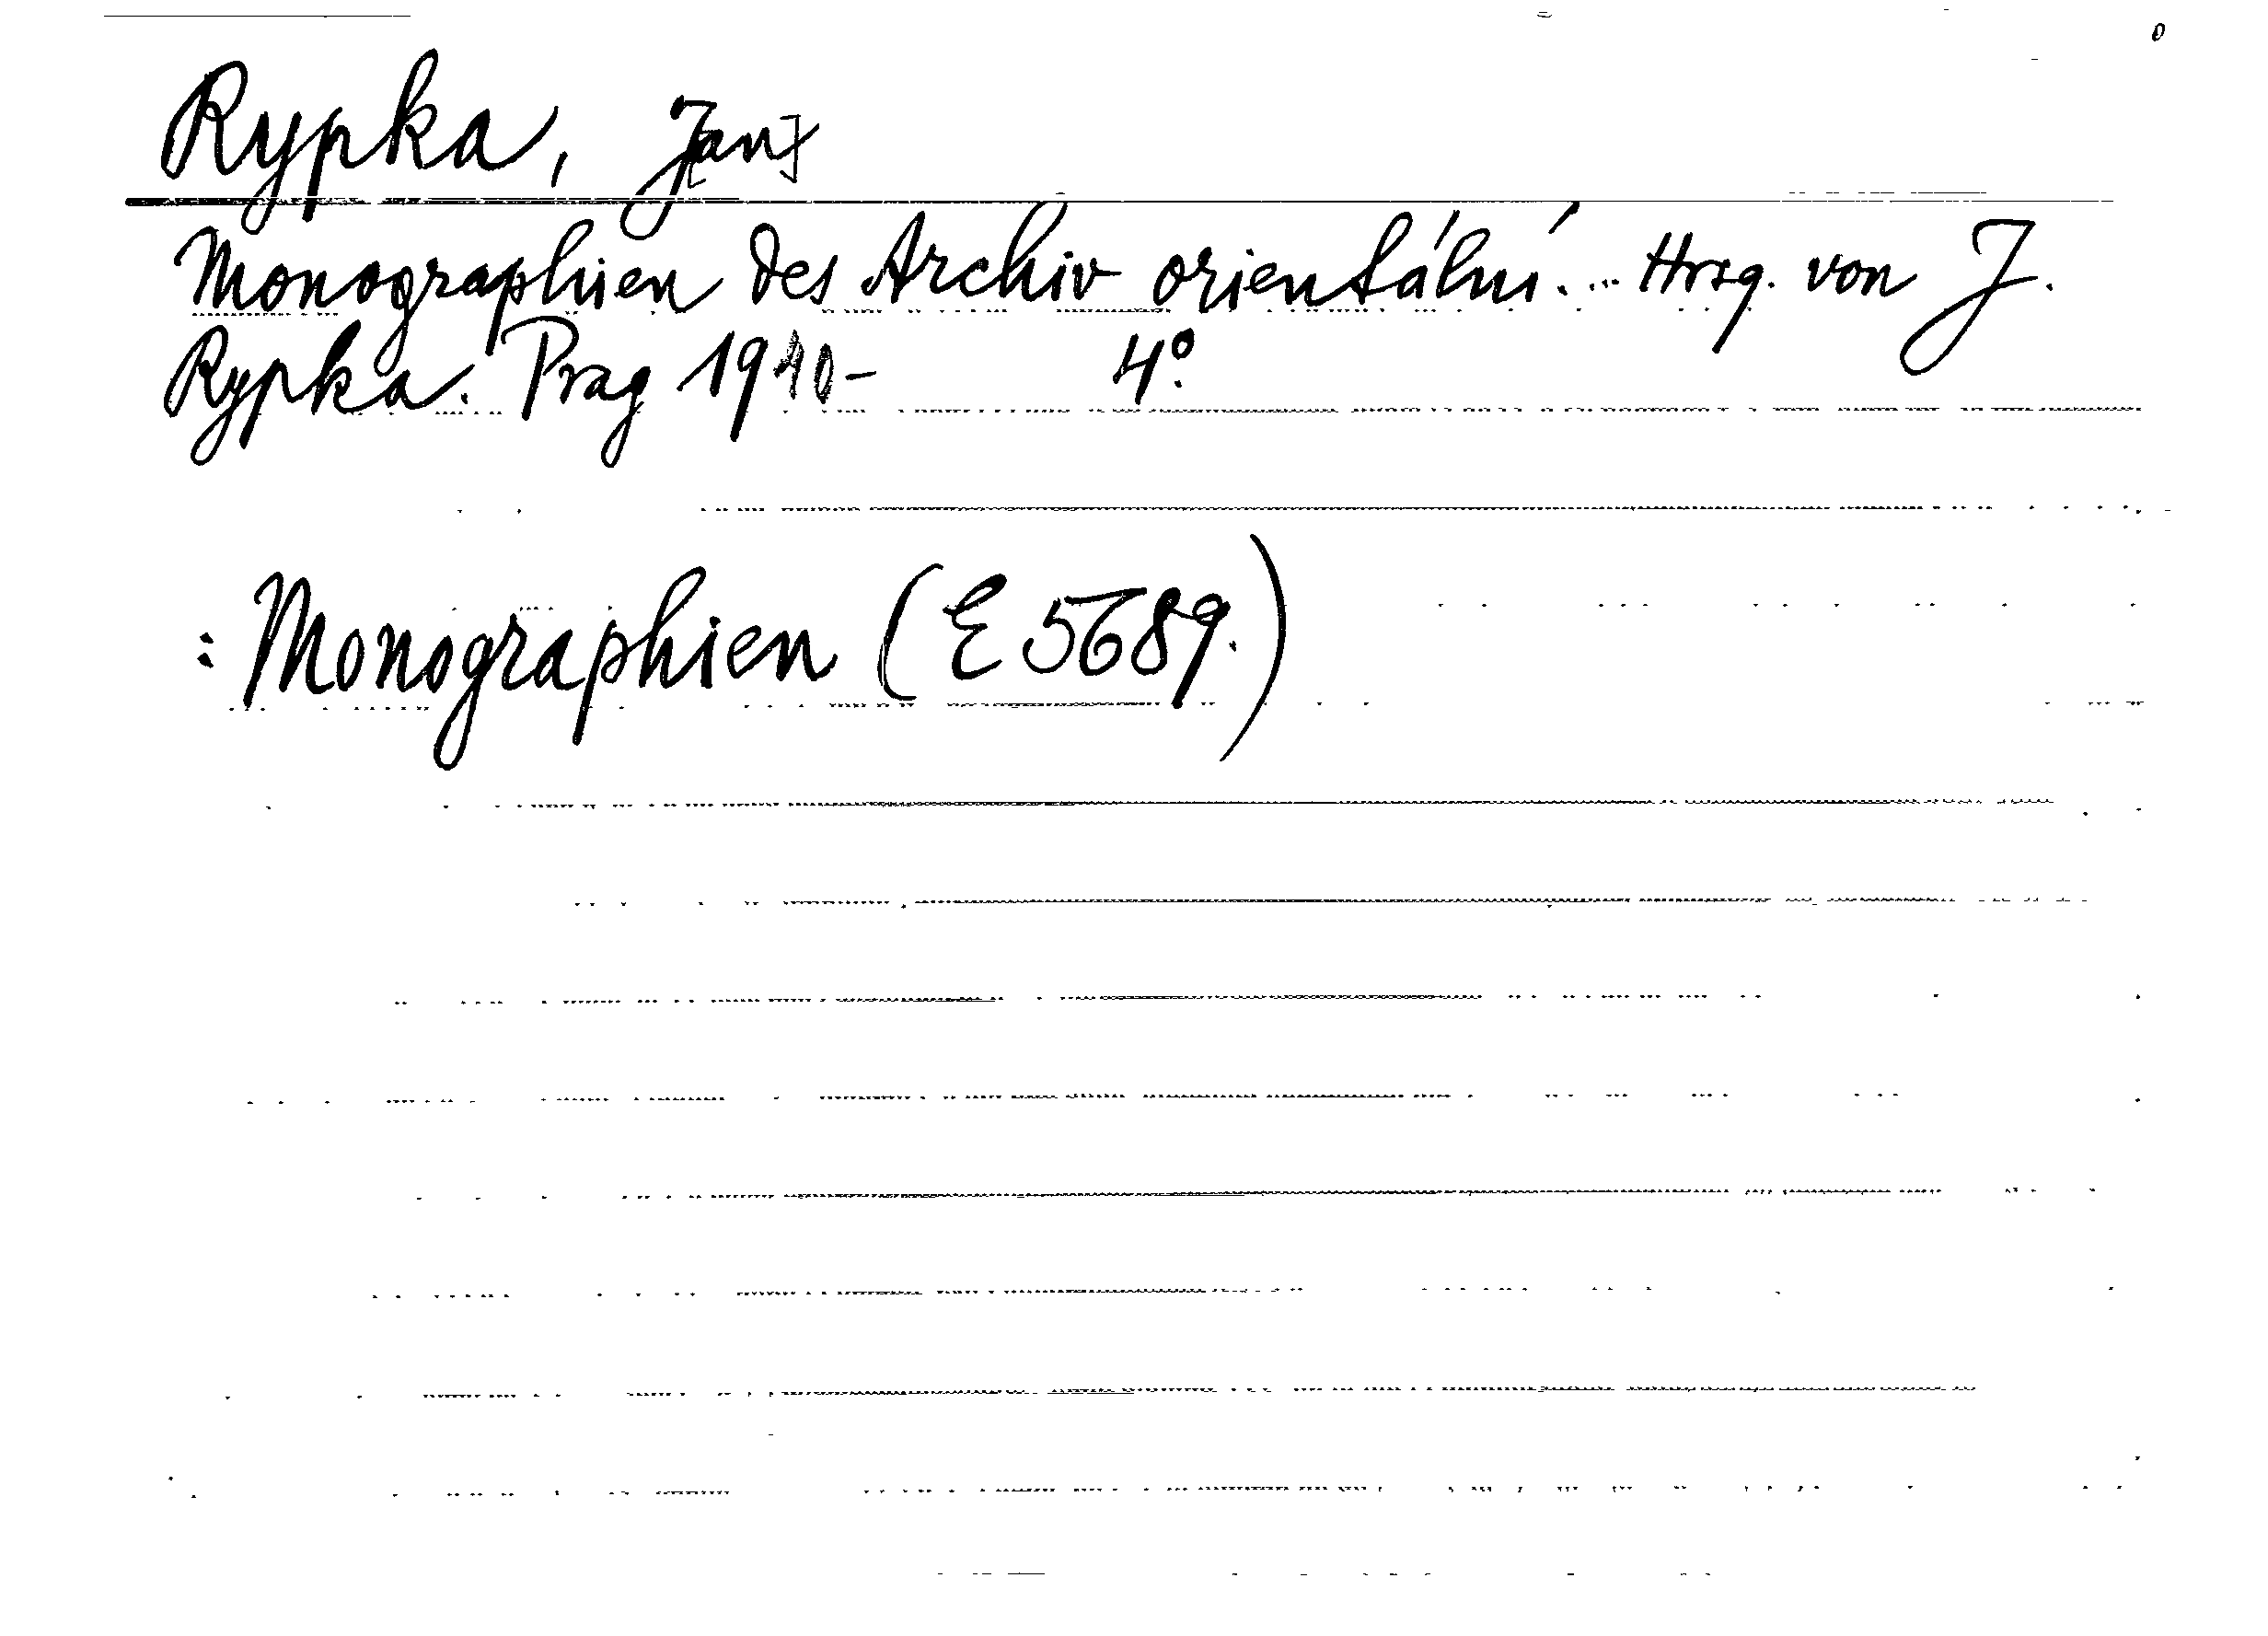 Rypka, J[an]
Monographien des Archiv orientální. ... Hrsg. von J.
Rypka. Prag 1940- 4°.
: Monographien (E 5689.)